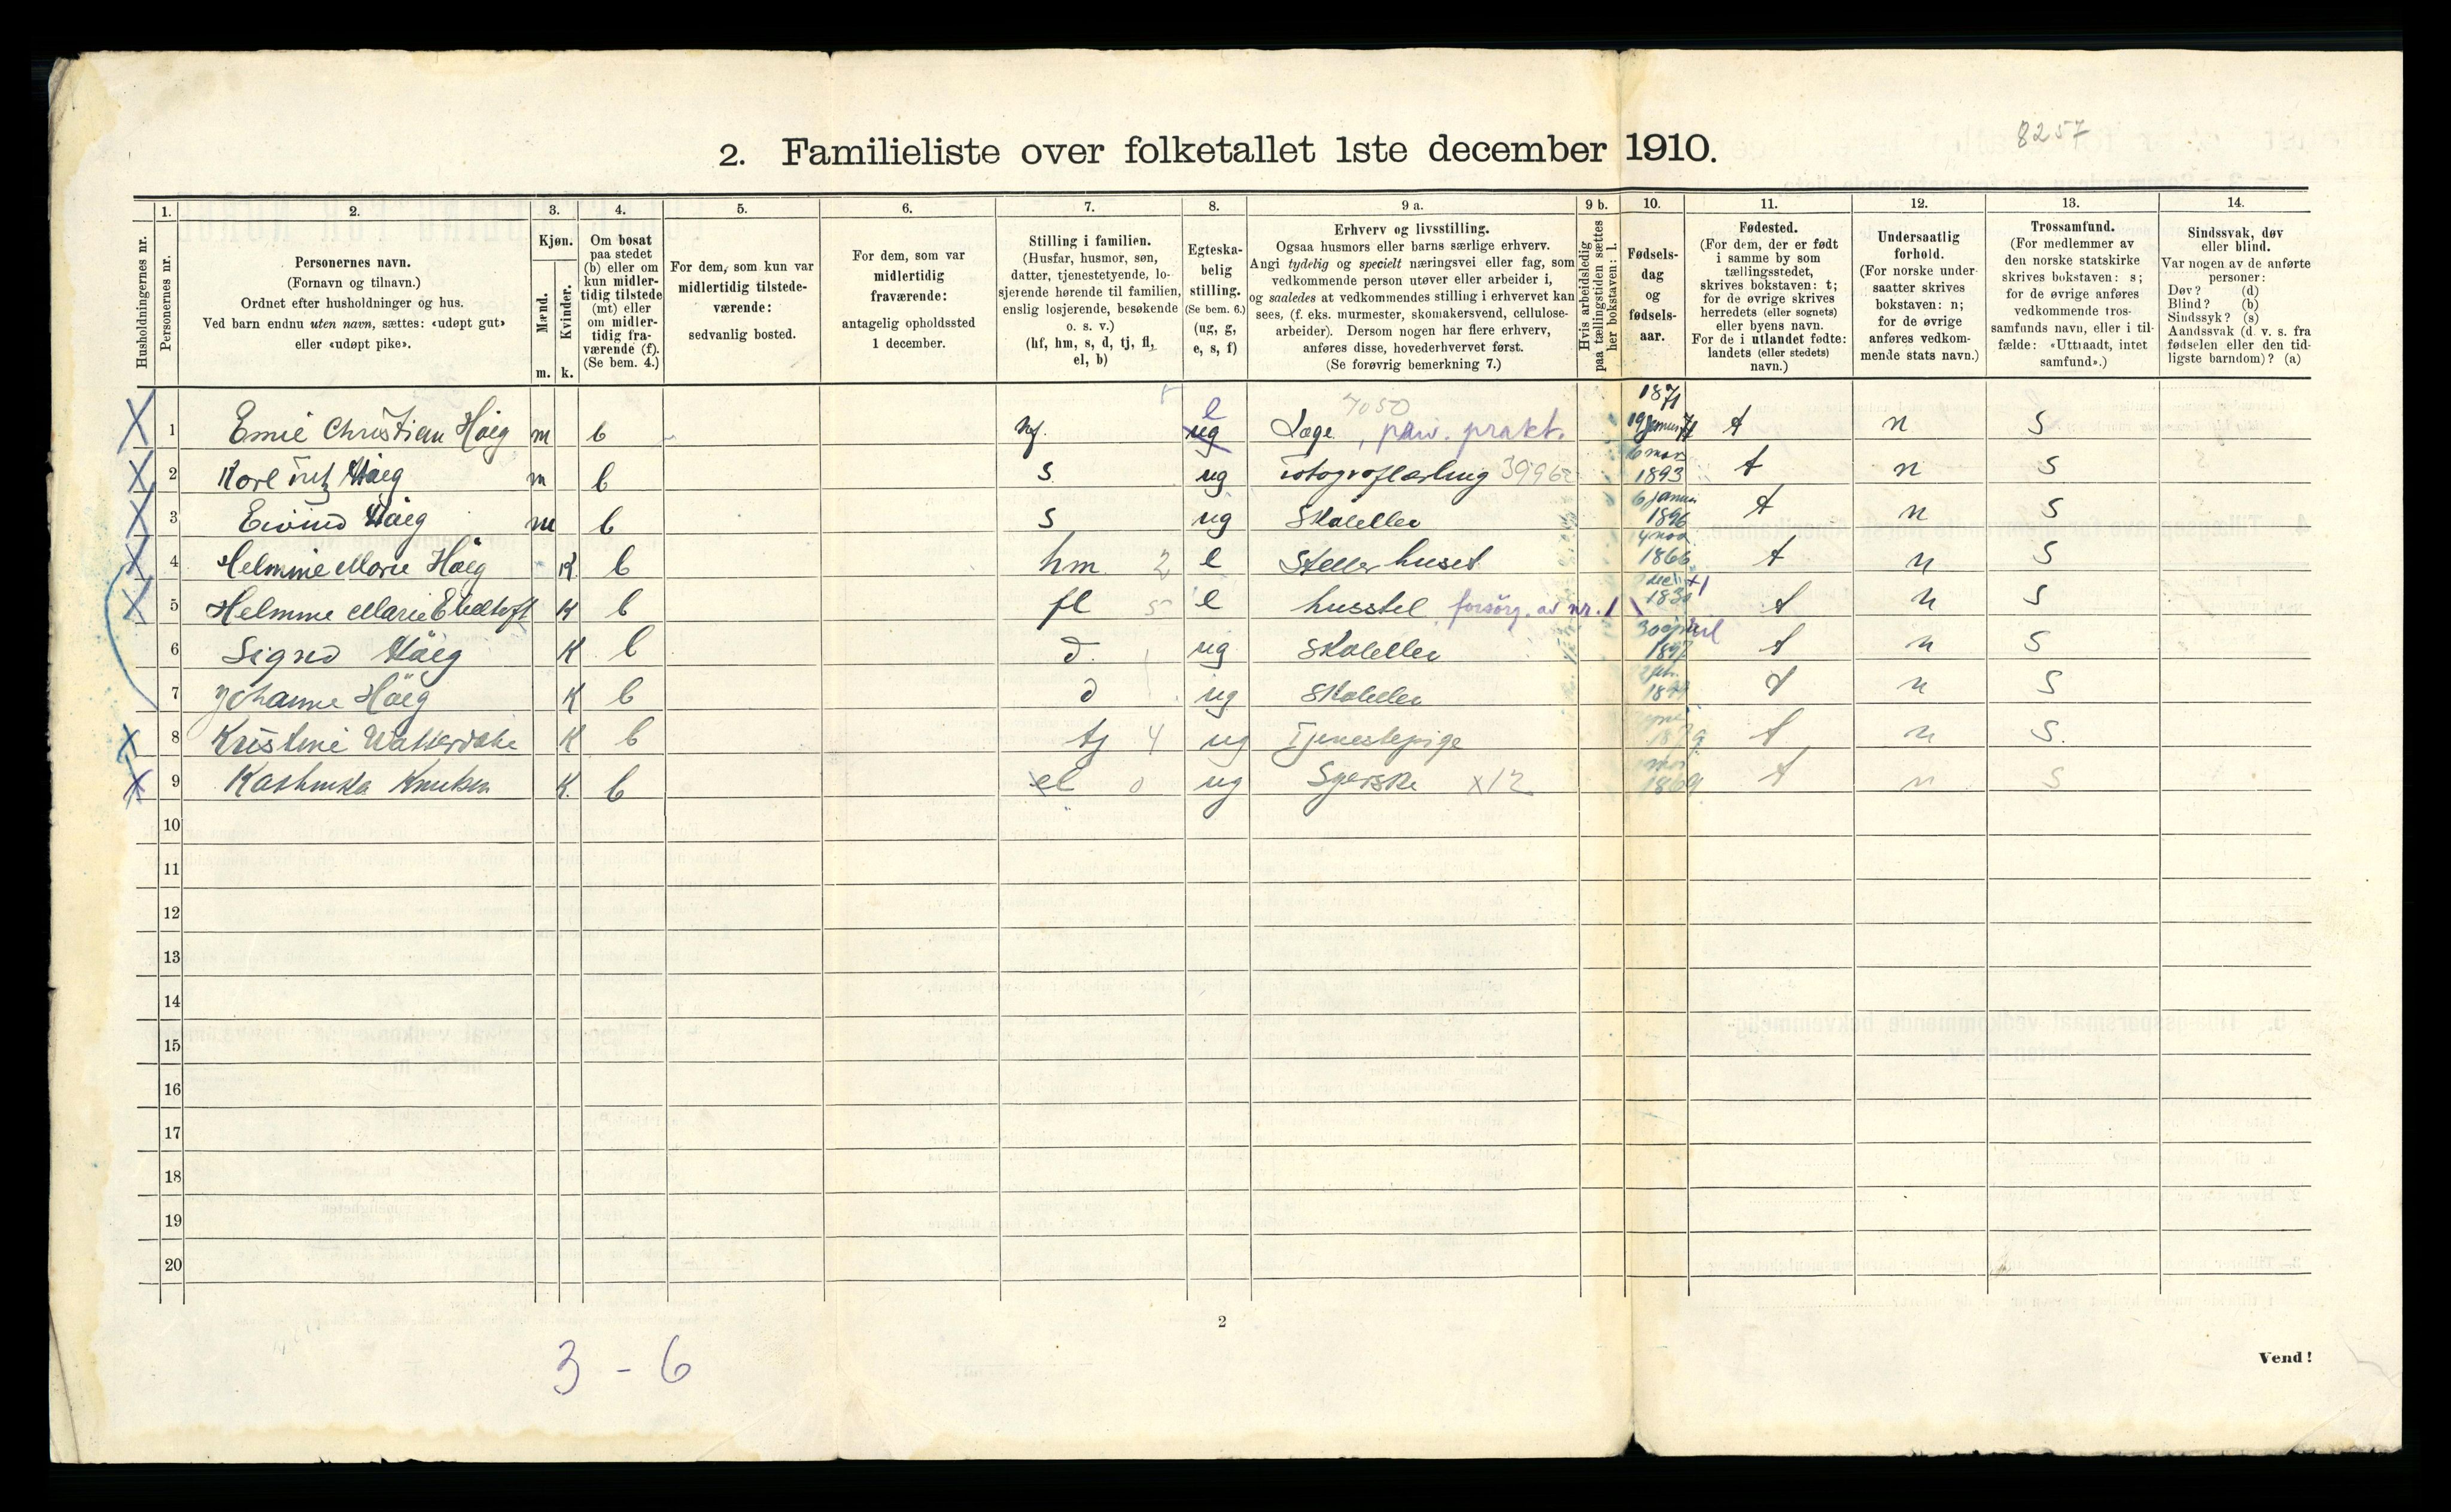 8257
2. Familieliste over folketallet 1ste december 1910.
1. 2. 3. 4. 5. 6. 7. 8. 9 a. 9 b. 10. 11. 12. 13. 14.
Husholdningernes nr.
Personernes nr.
Personernes navn.
(Fornavn og tilnavn.)
Ordnet efter husholdninger og hus.
Ved barn endnu uten navn, sættes: «udøpt gut»
eller «udøpt pike».
Kjøn.
Mænd.
Kvinder.
m. k.
Om bosat
paa stedet
(b) eller om
kun midler-
tidig tilstede
(mt) eller
om midler-
tidig fra-
værende (f).
(Se bem. 4.)
For dem, som kun var
midlertidig tilstede-
værende:
sedvanlig bosted.
For dem, som var
midlertidig
fraværende:
antagelig opholdssted
1 december.
Stilling i familien.
(Husfar, husmor, søn,
datter, tjenestetyende, lo-
sjerende hørende til familien,
enslig losjerende, besøkende
o. s. v.)
(hf, hm, s, d, tj, fl,
el, b)
Egteska-
belig
stilling.
(Se bem. 6.)
(ug, g,
e, s, f)
Erhverv og livsstilling.
Ogsaa husmors eller barns særlige erhverv.
Angi tydelig og specielt næringsvei eller fag, som
vedkommende person utøver eller arbeider i,
og saaledes at vedkommendes stilling i erhvervet kan
sees, (f. eks. murmester, skomakersvend, cellulose-
arbeider). Dersom nogen har flere erhverv,
anføres disse, hovederhvervet først.
(Se forøvrig bemerkning 7.)
Hvis arbeidsledig
paa tællingstiden sættes
her bokstaven: l.
Fødsels-
dag
og
fødsels-
aar.
Fødested.
(For dem, der er født
i samme by som
tællingsstedet,
skrives bokstaven: t;
for de øvrige skrives
herredets (eller sognets)
eller byens navn.
For de i utlandet fødte:
landets (eller stedets)
navn.)
Undersaatlig
forhold.
(For norske under-
saatter skrives
bokstaven: n;
for de øvrige
anføres vedkom-
mende stats navn.)
Trossamfund.
(For medlemmer av
den norske statskirke
skrives bokstaven: s;
for de øvrige anføres
vedkommende tros-
samfunds navn, eller i til-
fælde: «Uttraadt, intet
samfund».)
Sindssvak, døv
eller blind.
Var nogen av de anførte
personer:
Døv? (d)
Blind? (b)
Sindssyk? (s)
Aandssvak (d. v. s. fra
fødselen eller den tid-
ligste barndom)? (a)
1 Christian Høeg m b hf. ug e Læge, priv. prakt. 7050 1871 t n S
2 Karl Høeg m b s ug 1893 t n S
3 Eivind Høeg m b s ug Skoleelev 1896 t n S
4 Helmine Marie Høeg K b hm 2 e Steller huset 1866 t n S
5 Helmine Marie K b fl 5 e husstel forsörg. av nr. 1 t n S
6 Høeg K b d. ug Skoleelev 30 april 1897 t n S
7 Johanne Höeg K b d ug Skoleelev t n S
8 Kristine K b tj 4 ug Tjenestepige t n S.
9 Knutsen K. b el 0 ug Syerske x12 1869 t n S
10
11
12
13
14
15
16
17
18
19
20
2
3 - 6
Vend!